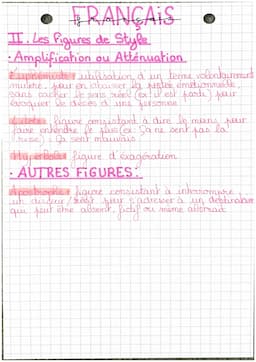 FRANÇAIS
II. Les Figures de Style
• Amplification ou Atténuation
Euphémisme : utilisation d'un terme volontairement
pour en
sans cacher le sens réel (ex : il est parti) pour
évoquer le décès d'une personne
Litote : figure consistant à dire le moins pour
faire entendre le plus (ex : Ça ne sent pas la
rose) : Ça sent mauvais
Hyperbole : figure d'exagération
• AUTRES FIGURES :
Apostrophe : figure consistant à interrompre
un discours / récit pour s'adresser à un destinataire
qui peut être absent, fictif ou même abstrait